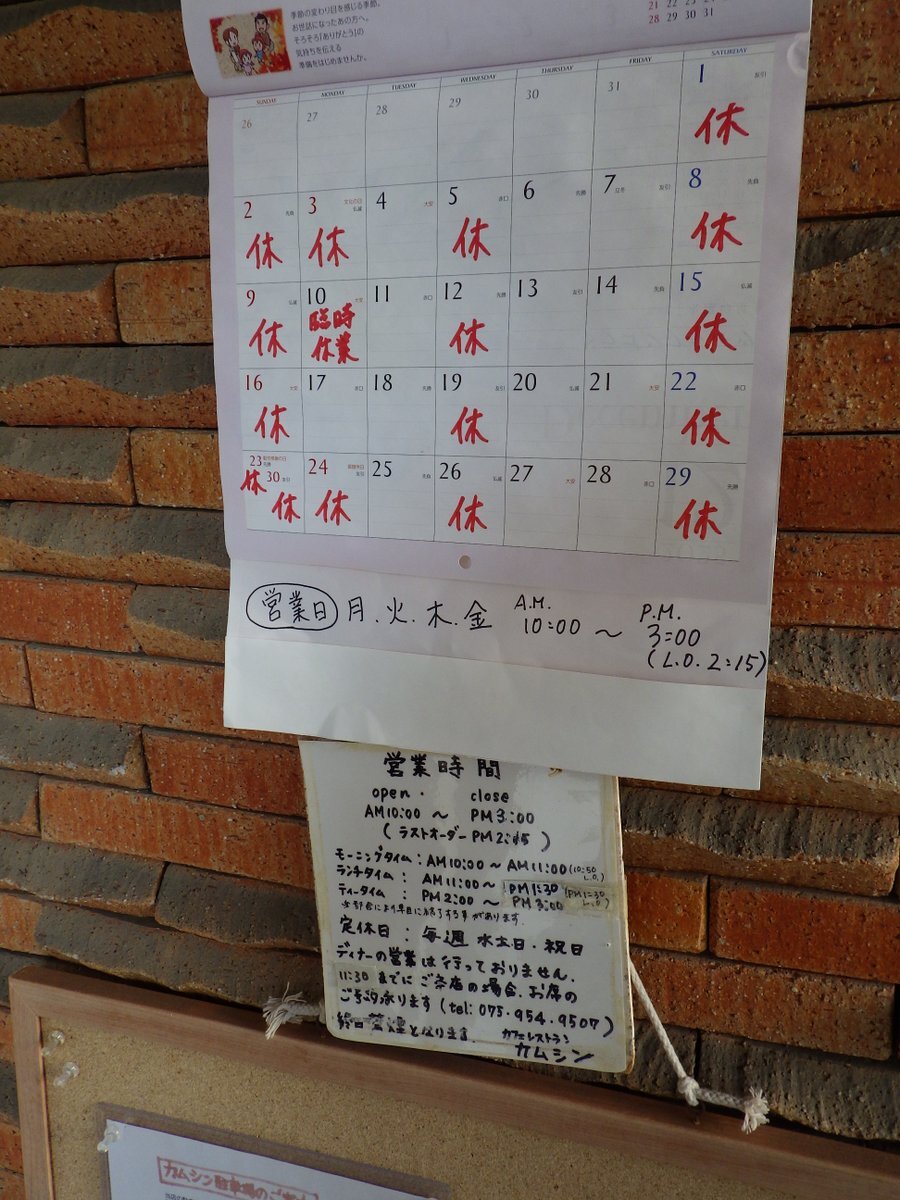 季節の変わり目を感じる季節。
お世話になったあの方へ。
そろそろ「ありがとう」の
気持ちを伝える
準備をはじめませんか。
21 22 23 24 25
28 29 30 31
SUNDAY MONDAY TUESDAY WEDNESDAY THURSDAY FRIDAY SATURDAY
26 27 28 29 30 31 1 友引
休
2 先負 3 文化の日 仏滅 4 大安 5 赤口 6 先勝 7 立冬 友引 8 先負
休 休 休 休
9 仏滅 10 大安 11 赤口 12 先勝 13 友引 14 先負 15 仏滅
休 臨時 休 休
休業
16 大安 17 赤口 18 先勝 19 友引 20 仏滅 21 大安 22 赤口
休 休 休
23 勤労感謝の日 先勝 30 友引 24 振替休日 友引 25 先負 26 仏滅 27 大安 28 赤口 29 先勝
休 休 休 休 休
営業日 月.火.木.金 A.M. 10:00 〜 P.M. 3:00
(L.O. 2:15)
営業時間
open. close
AM10:00 〜 PM3:00
(ラストオーダー PM2:15)
モーニングタイム:AM10:00〜AM11:00(10:50 L.O.)
ランチタイム:AM11:00〜PM1:30(PM1:30 L.O)
ティータイム:PM2:00〜PM3:00
※都合により早目に終了する事があります.
定休日:毎週 水土日・祝日
ディナーの営業は行っておりません.
11:30までにご来店の場合、お席の
ご予約承ります(tel:075.954.9507)
終日禁煙となります.
カフェレストラン
カムシン
カムシン駐車場のご